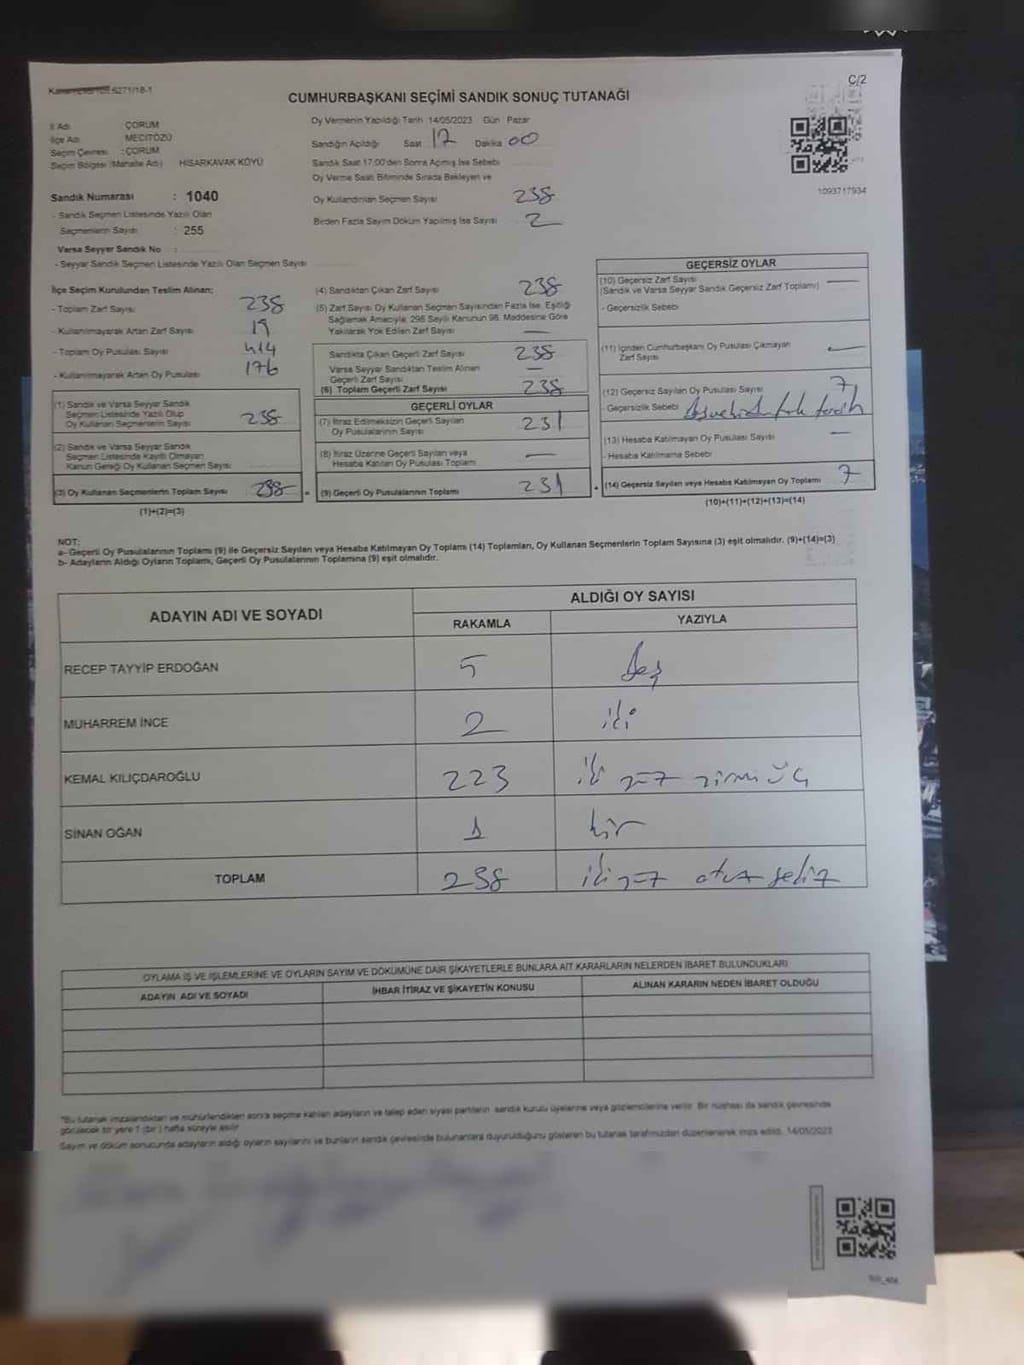 C/2
CUMHURBAŞKANI SEÇİMİ SANDIK SONUÇ TUTANAĞI
İl Adı ÇORUM
İlçe Adı MECİTÖZÜ
Seçim Çevresi : ÇORUM
Seçim Bölgesi (Mahalle Adı) HİSARKAVAK KÖYÜ
Sandık Numarası : 1040
- Sandık Seçmen Listesinde Yazılı Olan
Seçmenlerin Sayısı : 255
Varsa Seyyar Sandık No :
- Seyyar Sandık Seçmen Listesinde Yazılı Olan Seçmen Sayısı
Oy Vermenin Yapıldığı Tarih 14/05/2023 Gün Pazar
Sandığın Açıldığı Saat 17 Dakika 00
Sandık Saat 17:00'den Sonra Açılmış İse Sebebi
Oy Verme Saati Bitiminde Sırada Bekleyen ve
Oy Kullandırılan Seçmen Sayısı 238
Birden Fazla Sayım Döküm Yapılmış İse Sayısı 2
1093717934
İlçe Seçim Kurulundan Teslim Alınan:
- Toplam Zarf Sayısı 238
- Kullanılmayarak Artan Zarf Sayısı 19
- Toplam Oy Pusulası Sayısı 414
- Kullanılmayarak Artan Oy Pusulası 176
(1) Sandık ve Varsa Seyyar Sandık
Seçmen Listesinde Yazılı Olup
Oy Kullanan Seçmenlerin Sayısı 238
(2) Sandık ve Varsa Seyyar Sandık
Seçmen Listesinde Kayıtlı Olmayan
Kanun Gereği Oy Kullanan Seçmen Sayısı
(3) Oy Kullanan Seçmenlerin Toplam Sayısı 238
(1)+(2)=(3)
(4) Sandıktan Çıkan Zarf Sayısı 238
(5) Zarf Sayısı Oy Kullanan Seçmen Sayısından Fazla İse, Eşitliği
Sağlamak Amacıyla; 298 Sayılı Kanunun 98. Maddesine Göre
Yakılarak Yok Edilen Zarf Sayısı —
Sandıkta Çıkan Geçerli Zarf Sayısı 238
Varsa Seyyar Sandıktan Teslim Alınan
Geçerli Zarf Sayısı —
(6) Toplam Geçerli Zarf Sayısı 238
GEÇERLİ OYLAR
(7) İtiraz Edilmeksizin Geçerli Sayılan
Oy Pusulalarının Sayısı 231
(8) İtiraz Üzerine Geçerli Sayılan veya
Hesaba Katılan Oy Pusulası Toplamı —
(9) Geçerli Oy Pusulalarının Toplamı 231
GEÇERSİZ OYLAR
(10) Geçersiz Zarf Sayısı
(Sandık ve Varsa Seyyar Sandık Geçersiz Zarf Toplamı) —
- Geçersizlik Sebebi
(11) İçinden Cumhurbaşkanı Oy Pusulası Çıkmayan
Zarf Sayısı —
(12) Geçersiz Sayılan Oy Pusulası Sayısı 7
- Geçersizlik Sebebi
(13) Hesaba Katılmayan Oy Pusulası Sayısı —
- Hesaba Katılmama Sebebi
(14) Geçersiz Sayılan veya Hesaba Katılmayan Oy Toplamı 7
(10)+(11)+(12)+(13)=(14)
NOT:
a- Geçerli Oy Pusulalarının Toplamı (9) ile Geçersiz Sayılan veya Hesaba Katılmayan Oy Toplamı (14) Toplamları, Oy Kullanan Seçmenlerin Toplam Sayısına (3) eşit olmalıdır. (9)+(14)=(3)
b- Adayların Aldığı Oyların Toplamı, Geçerli Oy Pusulalarının Toplamına (9) eşit olmalıdır.
ADAYIN ADI VE SOYADI ALDIĞI OY SAYISI
RAKAMLA YAZIYLA
RECEP TAYYİP ERDOĞAN 5 beş
MUHARREM İNCE 2 iki
KEMAL KILIÇDAROĞLU 223 iki yüz yirmi üç
SİNAN OĞAN 1 bir
TOPLAM 238 iki yüz otuz sekiz
OYLAMA İŞ VE İŞLEMLERİNE VE OYLARIN SAYIM VE DÖKÜMÜNE DAİR ŞİKAYETLERLE BUNLARA AİT KARARLARIN NELERDEN İBARET BULUNDUKLARI
ADAYIN ADI VE SOYADI İHBAR İTİRAZ VE ŞİKAYETİN KONUSU ALINAN KARARIN NEDEN İBARET OLDUĞU
"Bu tutanak imzalandıktan ve mühürlendikten sonra seçime katılan adayların ve talep eden siyasi partilerin sandık kurulu üyelerine veya gözlemcilerine verilir. Bir nüshası da sandık çevresinde
görülecek bir yere 1 (bir) hafta süreyle asılır.
Sayım ve döküm sonucunda adayların aldığı oyların sayılarını ve bunların sandık çevresinde bulunanlara duyurulduğunu gösteren bu tutanak tarafımızdan düzenlenerek imza edildi. 14/05/2023